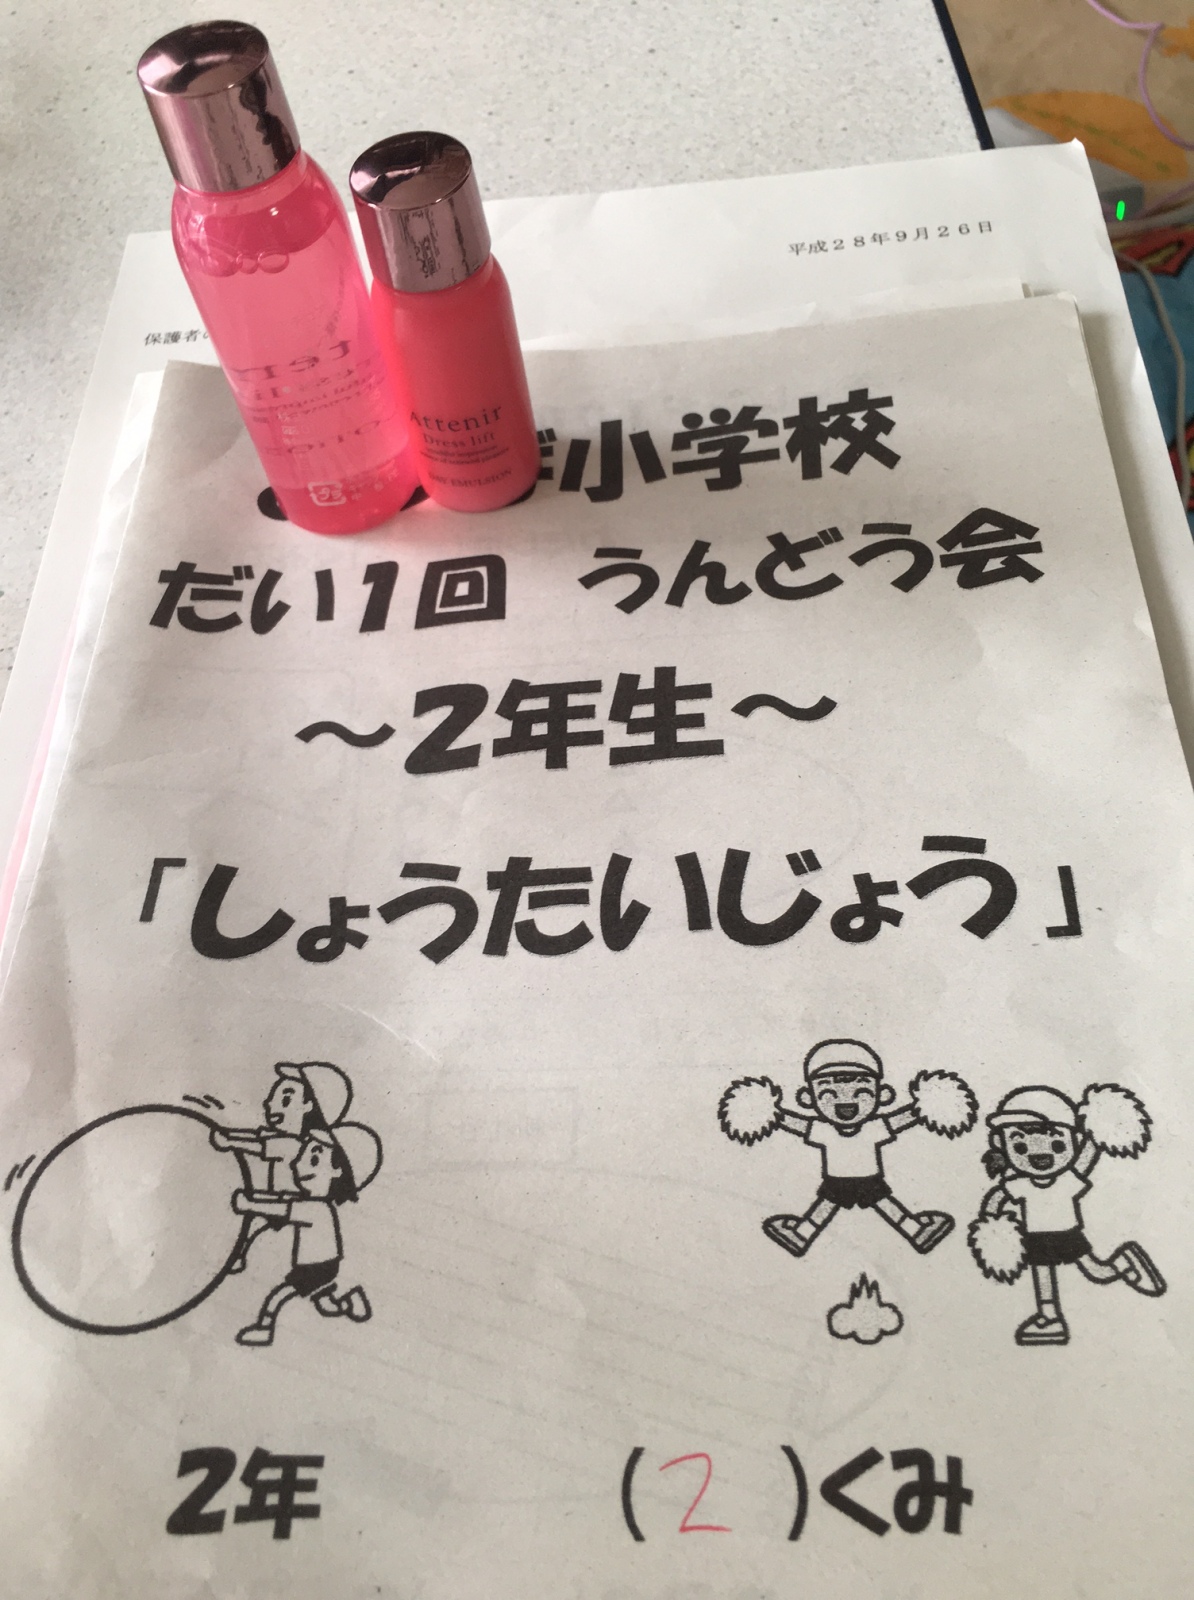 平成２８年９月２６日
保護者
小学校
だい1回 うんどう会
～2年生～
「しょうたいじょう」
2年 (2)くみ
Attenir
Dress lift
DAY EMULSION